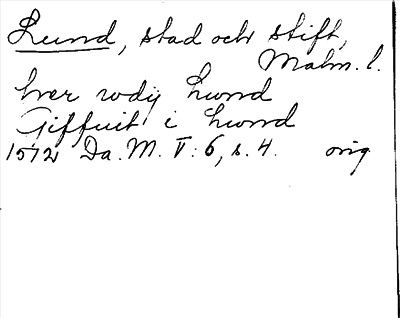 Lund, stad och stift,
Malm. l.
hver wdij Lwnd
Giffuit i Lwnd
1572 Da. M. V: 6, s. 4. orig